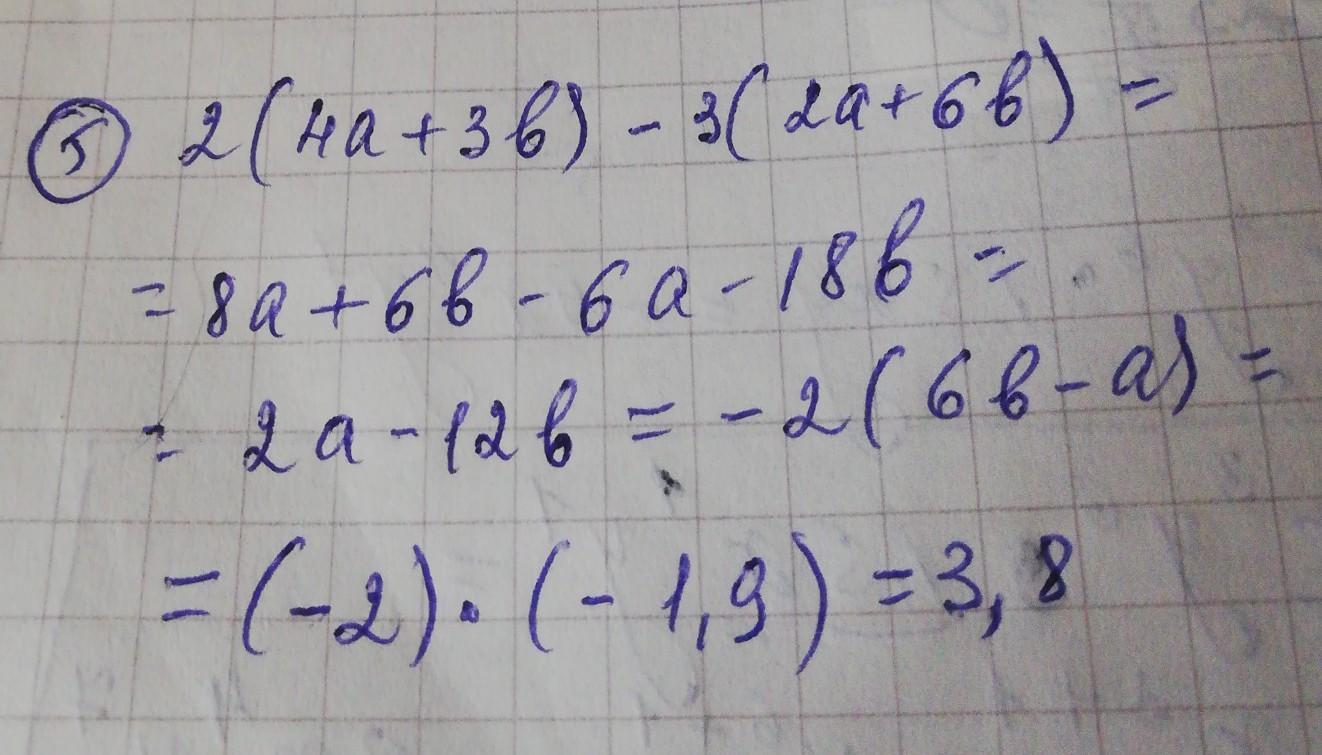 ⑤ 2(4a+3b) - 3(2a+6b) =
= 8a+6b - 6a - 18b =
= 2a - 12b = -2(6b - a) =
= (-2) · (-1,9) = 3,8